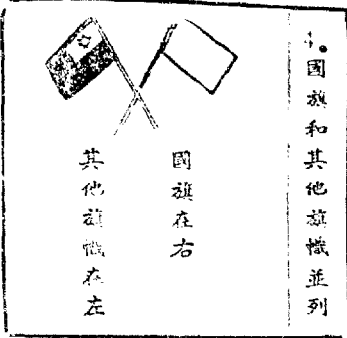 4.國旗和其他旗幟並列
國旗在右
其他旗幟在左